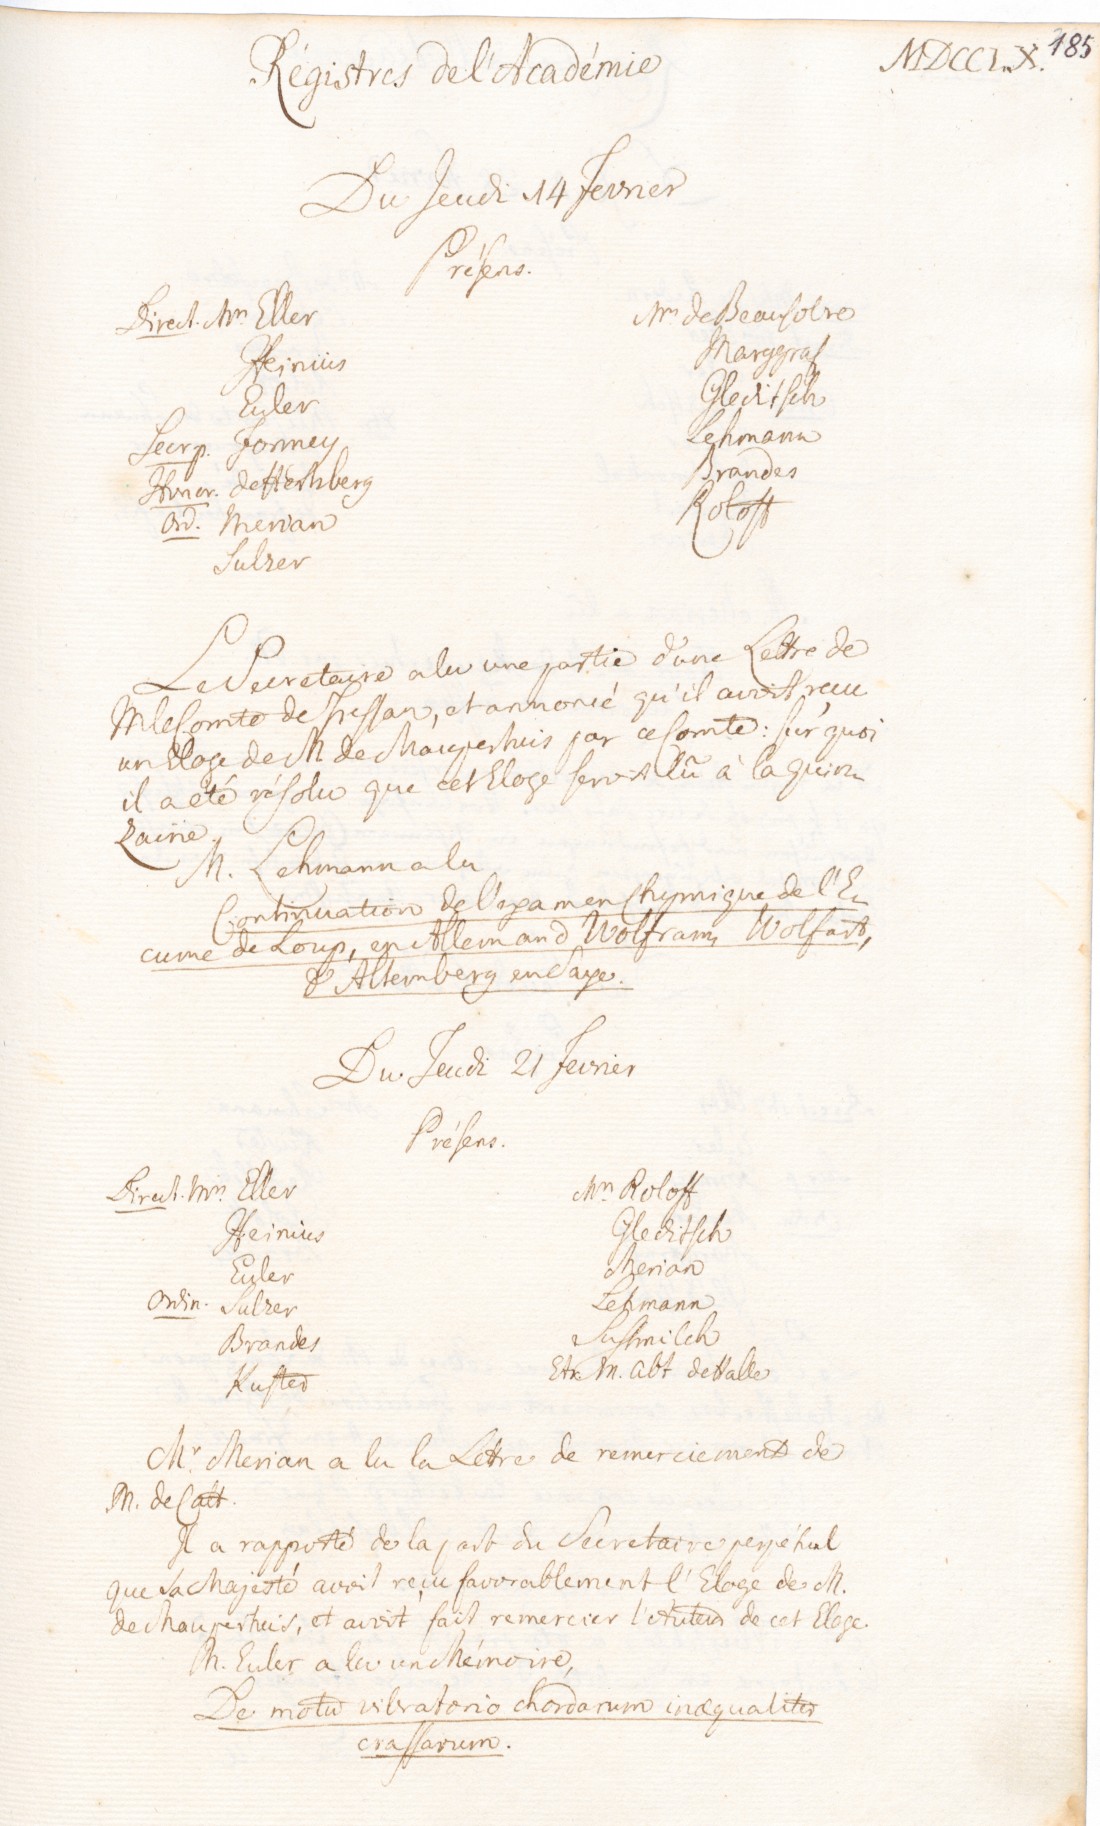 Régistres de l'Académie
MDCCLX. 185
Du Jeudi 14 Fevrier
Présens.
Direct. Mrs Eller
Heinius
Euler
Secr. p. Formey
Honor. de Hertzberg
Ord. Merian
Sulzer
Mrs de Beausobre
Marggraf
Gleditsch
Lehmann
Brandes
Roloff
Le Secretaire a lu une partie d'une Lettre de
M. le Comte de Tressan, et annoncé qu'il avoit reçu
un Eloge de M. de Maupertuis par ce Comte: sur quoi
il a été résolu que cet Eloge seroit lû à la quin-
zaine.
M. Lehmann a lu
Continuation de l'examen Chymique de l'E-
cume de Loup, en Allemand Wolfram, Wolfart,
d'Altemberg en Saxe.
Du Jeudi 21 Fevrier
Présens.
Direct. Mrs Eller
Heinius
Euler
Ordin. Sulzer
Brandes
Kuster
Mrs Roloff
Gleditsch
Merian
Lehmann
Susmilch
Etr. M. Abt de Halle
Mr. Merian a lu la Lettre de remerciement de
M. de Catt.
Il a rapporté de la part du Secretaire perpétuel
que Sa Majesté avoit reçu favorablement l'Eloge de M.
de Maupertuis, et avoit fait remercier l'Auteur de cet Eloge.
M. Euler a lu un Mémoire,
De motu vibratorio chordarum inæqualiter
crassarum.